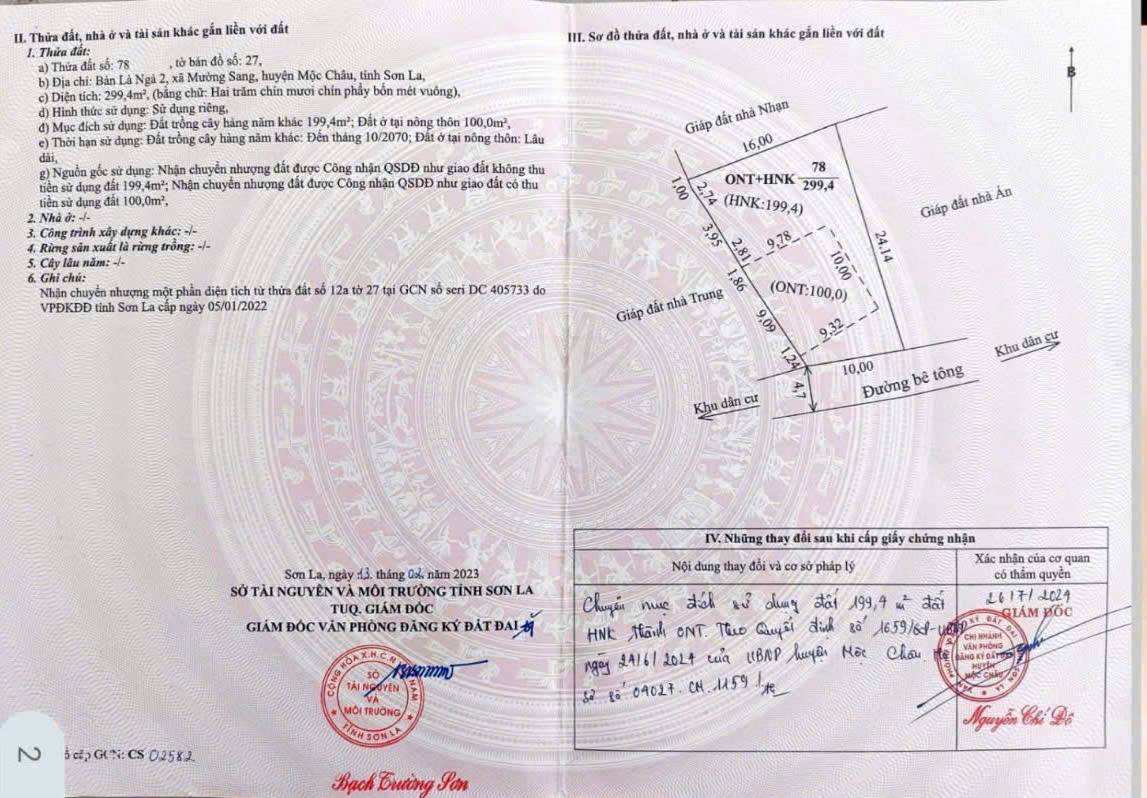 II. Thửa đất, nhà ở và tài sản khác gắn liền với đất
1. Thửa đất:
a) Thửa đất số: 78 , tờ bản đồ số: 27,
b) Địa chỉ: Bản Là Ngà 2, xã Mường Sang, huyện Mộc Châu, tỉnh Sơn La,
c) Diện tích: 299,4m², (bằng chữ: Hai trăm chín mươi chín phẩy bốn mét vuông),
d) Hình thức sử dụng: Sử dụng riêng,
đ) Mục đích sử dụng: Đất trồng cây hàng năm khác 199,4m²; Đất ở tại nông thôn 100,0m²,
e) Thời hạn sử dụng: Đất trồng cây hàng năm khác: Đến tháng 10/2070; Đất ở tại nông thôn: Lâu
dài,
g) Nguồn gốc sử dụng: Nhận chuyển nhượng đất được Công nhận QSDĐ như giao đất không thu
tiền sử dụng đất 199,4m²; Nhận chuyển nhượng đất được Công nhận QSDĐ như giao đất có thu
tiền sử dụng đất 100,0m²,
2. Nhà ở: -/-
3. Công trình xây dựng khác: -/-
4. Rừng sản xuất là rừng trồng: -/-
5. Cây lâu năm: -/-
6. Ghi chú:
Nhận chuyển nhượng một phần diện tích từ thửa đất số 12a tờ 27 tại GCN số seri DC 405733 do
VPĐKĐĐ tỉnh Sơn La cấp ngày 05/01/2022
Sơn La, ngày 13. tháng 02. năm 2023
SỞ TÀI NGUYÊN VÀ MÔI TRƯỜNG TỈNH SƠN LA
TUQ. GIÁM ĐỐC
GIÁM ĐỐC VĂN PHÒNG ĐĂNG KÝ ĐẤT ĐAI
CỘNG HÒA X.H.C.N VIỆT NAM
SỞ
TÀI NGUYÊN
VÀ
MÔI TRƯỜNG
TỈNH SƠN LA
Bạch Trường Sơn
2
ố cấp GCN: CS 02582
III. Sơ đồ thửa đất, nhà ở và tài sản khác gắn liền với đất
B
Giáp đất nhà Nhạn
16,00
ONT+HNK 78
299,4
(HNK:199,4)
1,00
2,74
3,95
2,81
9,78
10,00
24.14
Giáp đất nhà Án
1,86
(ONT:100,0)
Giáp đất nhà Trung
9,09
9,32
1,24
4,7
10,00
Khu dân cư
Đường bê tông
Khu dân cư
IV. Những thay đổi sau khi cấp giấy chứng nhận
Nội dung thay đổi và cơ sở pháp lý
Xác nhận của cơ quan
có thẩm quyền
Chuyển mục đích sử dụng đất 199,4 m² đất
HNK thành ONT. Theo Quyết định số 1659/QĐ-UBND
ngày 24/6/2024 của UBND huyện Mộc Châu. Hồ
sơ số 04027.CM.1159
26/7/2024
GIÁM ĐỐC
CHI NHÁNH
VĂN PHÒNG
ĐĂNG KÝ ĐẤT ĐAI
HUYỆN
MỘC CHÂU
Nguyễn Chí Đô